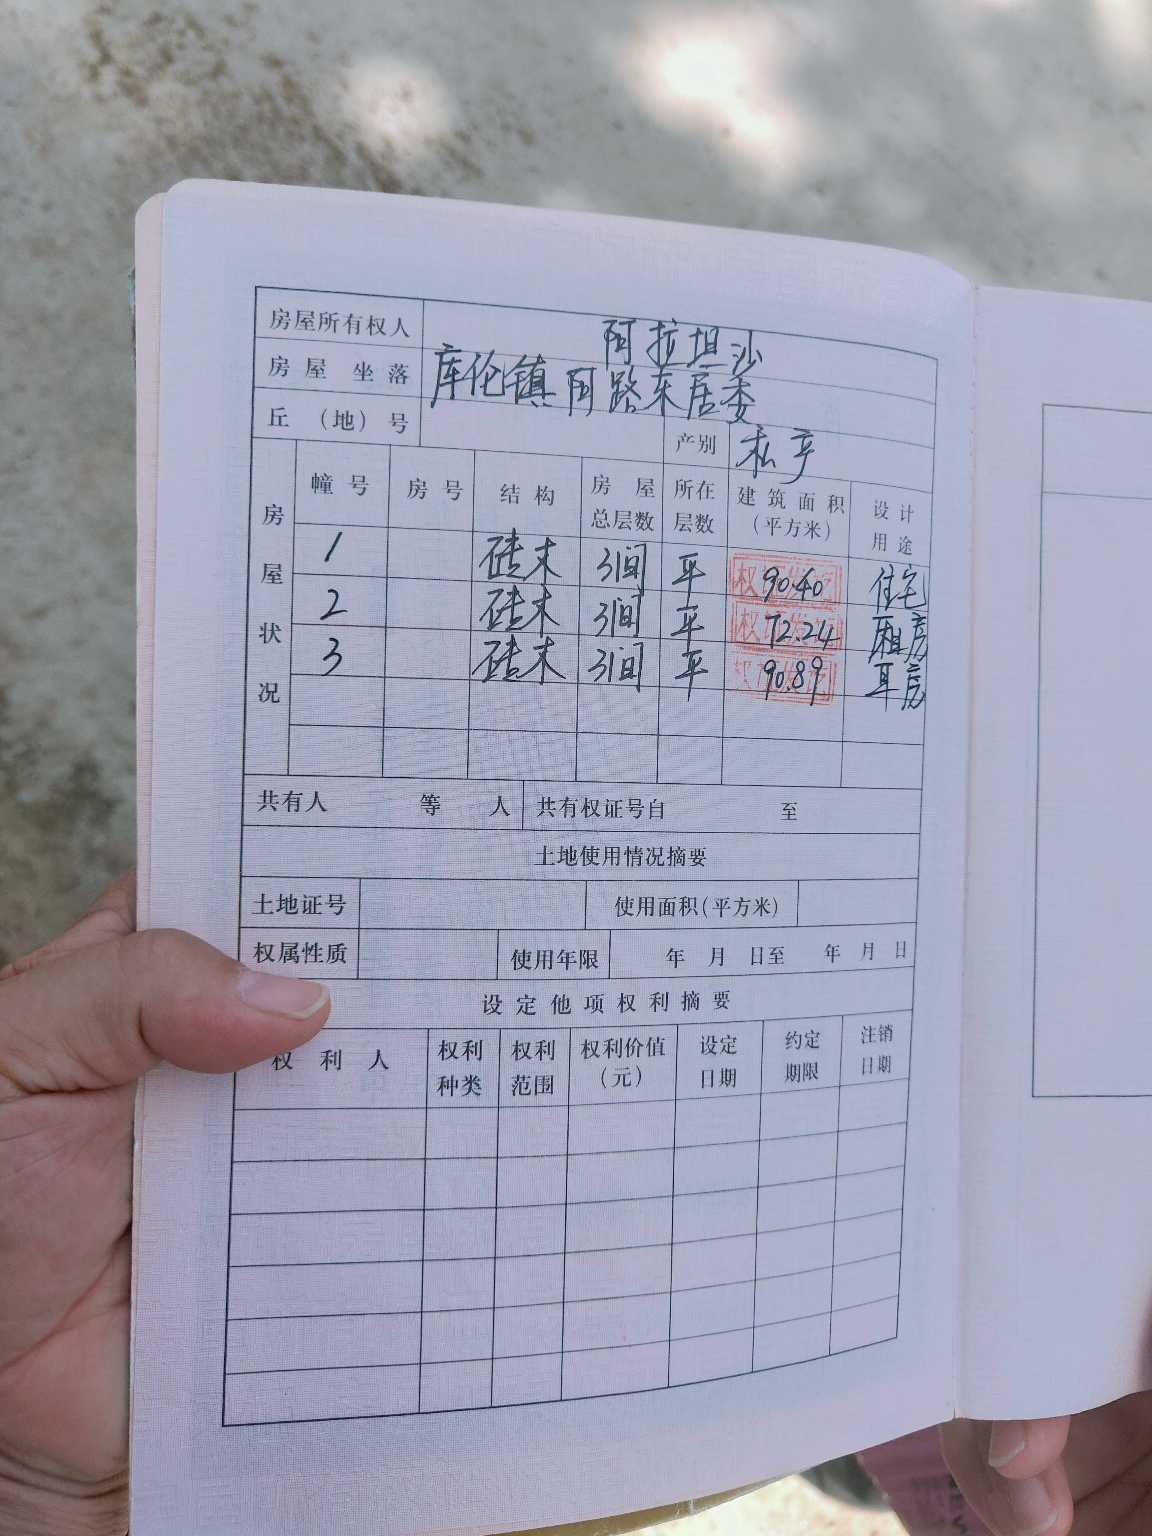 房屋所有权人 阿拉坦沙
房屋坐落 库伦镇阿路东居委
丘（地）号 产别 私产
房屋状况 幢号 房号 结构 房屋总层数 所在层数 建筑面积（平方米） 设计用途
1 砖木 3间 平 90.40 住宅
2 砖木 3间 平 72.24 厢房
3 砖木 3间 平 90.89 耳房
共有人 等 人 共有权证号自 至
土地使用情况摘要
土地证号 使用面积(平方米)
权属性质 使用年限 年 月 日至 年 月 日
设定他项权利摘要
权利人 权利种类 权利范围 权利价值（元） 设定日期 约定期限 注销日期